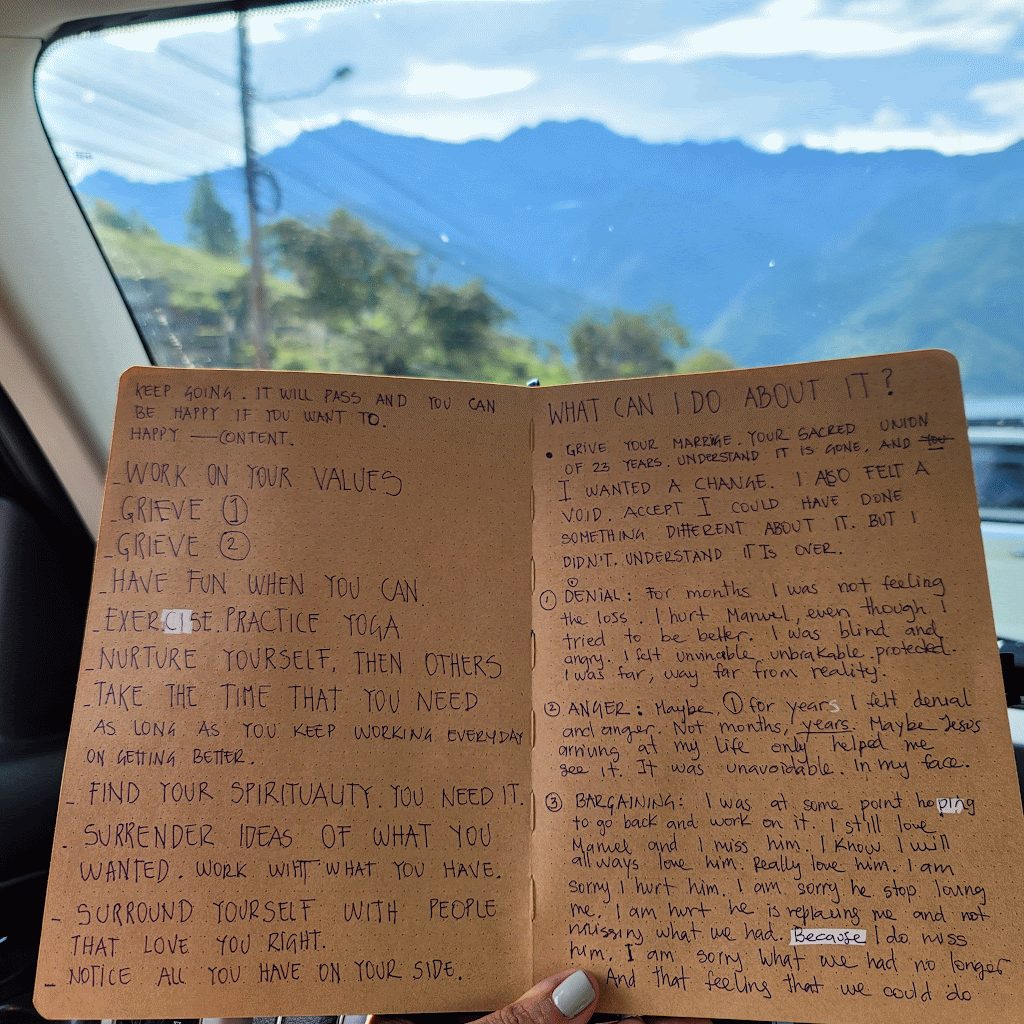 KEEP GOING. IT WILL PASS AND YOU CAN
BE HAPPY IF YOU WANT TO.
HAPPY — CONTENT.
_WORK ON YOUR VALUES
_GRIEVE ①
_GRIEVE ②
_HAVE FUN WHEN YOU CAN.
_EXERCISE. PRACTICE YOGA
_NURTURE YOURSELF, THEN OTHERS
_TAKE THE TIME THAT YOU NEED
AS LONG AS YOU KEEP WORKING EVERYDAY
ON GETTING BETTER.
_ FIND YOUR SPIRITUALITY. YOU NEED IT.
. SURRENDER IDEAS OF WHAT YOU
WANTED. WORK WIHT WHAT YOU HAVE.
_ SURROUND YOURSELF WITH PEOPLE
THAT LOVE YOU RIGHT.
_ NOTICE ALL YOU HAVE ON YOUR SIDE.
WHAT CAN I DO ABOUT IT?
• GRIVE YOUR MARRIGE. YOUR SACRED UNION
OF 23 YEARS. UNDERSTAND IT IS GONE, AND YOU
I WANTED A CHANGE. I ALSO FELT A
VOID. ACCEPT I COULD HAVE DONE
SOMETHING DIFFERENT ABOUT IT. BUT I
DIDN'T. UNDERSTAND IT IS OVER.
① DENIAL: For months I was not feeling
the loss. I hurt Manuel, even though I
tried to be better. I was blind and
angry. I felt unvinable, unbrakable, protected.
I was far, way far from reality.
② ANGER: Maybe ① for years I felt denial
and anger. Not months, years. Maybe Jesús
arriving at my life only helped me
see it. It was unavoidable. In my face.
③ BARGAINING: I was at some point hoping
to go back and work on it. I still love
Manuel and I miss him. I know I will
allways love him. Really love him. I am
sorry I hurt him. I am sorry he stop loving
me. I am hurt he is replacing me and not
missing what we had. Because I do miss
him. I am sorry what we had no longer
And that feeling that we could do